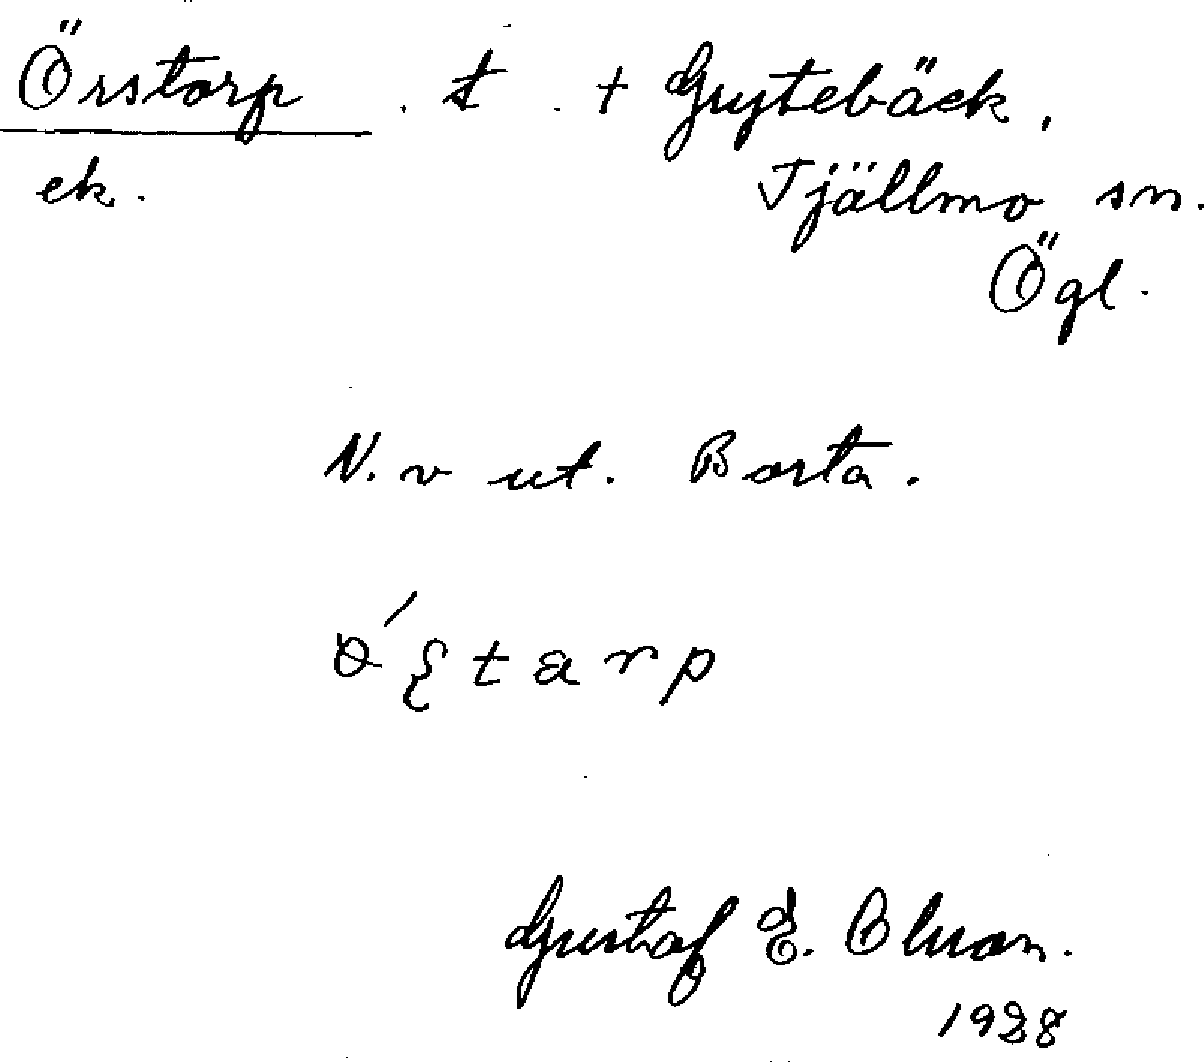 Örstorp . t . + Grytebäck.
ek. Tjällmo sn.
Ögl.
N. v ut. Borta.
Gustaf E. Olson.
1928